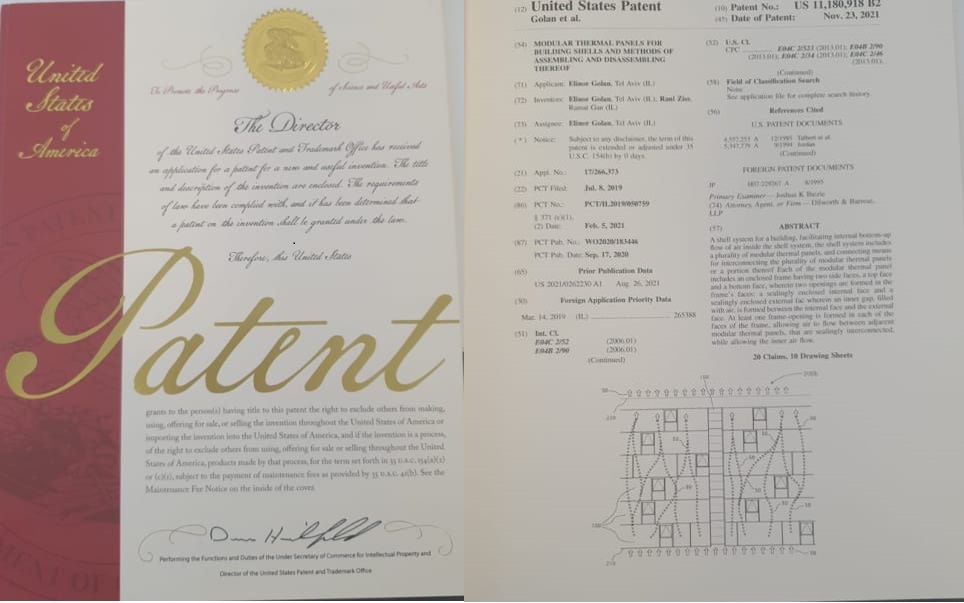 United
States
of
America
To Promote the Progress
of Science and Useful Arts
The Director
of the United States Patent and Trademark Office has received
an application for a patent for a new and useful invention. The title
and description of the invention are enclosed. The requirements
of law have been complied with, and it has been determined that
a patent on the invention shall be granted under the law.
Therefore, this United States
Patent
grants to the person(s) having title to this patent the right to exclude others from making,
using, offering for sale, or selling the invention throughout the United States of America or
importing the invention into the United States of America, and if the invention is a process,
of the right to exclude others from using, offering for sale or selling throughout the United
States of America, products made by that process, for the term set forth in 35 U.S.C. 154(a)(2)
or (c)(1), subject to the payment of maintenance fees as provided by 35 U.S.C. 41(b). See the
Maintenance Fee Notice on the inside of the cover.
Performing the Functions and Duties of the Under Secretary of Commerce for Intellectual Property and
Director of the United States Patent and Trademark Office
(12) United States Patent
Golan et al.
(10) Patent No.: US 11,180,918 B2
(45) Date of Patent: Nov. 23, 2021
(54) MODULAR THERMAL PANELS FOR
BUILDING SHELLS AND METHODS OF
ASSEMBLING AND DISASSEMBLING
THEREOF
(71) Applicant: Elinor Golan, Tel Aviv (IL)
(72) Inventors: Elinor Golan, Tel Aviv (IL); Rani Ziss,
Ramat Gan (IL)
(73) Assignee: Elinor Golan, Tel Aviv (IL)
(*) Notice: Subject to any disclaimer, the term of this
patent is extended or adjusted under 35
U.S.C. 154(b) by 0 days.
(21) Appl. No.: 17/266,373
(22) PCT Filed: Jul. 8, 2019
(86) PCT No.: PCT/IL2019/050759
§ 371 (c)(1),
(2) Date: Feb. 5, 2021
(87) PCT Pub. No.: WO2020/183446
PCT Pub. Date: Sep. 17, 2020
(65) Prior Publication Data
US 2021/0262230 A1 Aug. 26, 2021
(30) Foreign Application Priority Data
Mar. 14, 2019 (IL) 265388
(51) Int. Cl.
E04C 2/52 (2006.01)
E04B 2/90 (2006.01)
(Continued)
(52) U.S. Cl.
CPC E04C 2/523 (2013.01); E04B 2/90
(2013.01); E04C 2/34 (2013.01); E04C 2/46
(2013.01)
(Continued)
(58) Field of Classification Search
None
See application file for complete search history.
(56) References Cited
U.S. PATENT DOCUMENTS
(Continued)
FOREIGN PATENT DOCUMENTS
JP 8/1995
Primary Examiner
(74) Attorney, Agent, or Firm — Dilworth & Barrese,
LLP
(57) ABSTRACT
A shell system for a building, facilitating internal bottom-up
flow of air inside the shell system, the shell system includes
a plurality of modular thermal panels, and connecting means
for interconnecting the plurality of modular thermal panels
or a portion thereof. Each of the modular thermal panel
includes an enclosed frame having two side faces, a top face
and a bottom face, wherein two openings are formed in the
frame's faces: a sealingly enclosed internal face and a
sealingly enclosed external fac wherein an inner gap, filled
with air, is formed between the internal face and the external
face. At least one frame-opening is formed in each of the
faces of the frame, allowing air to flow between adjacent
modular thermal panels, that are sealingly interconnected,
while allowing the inner air flow.
20 Claims, 10 Drawing Sheets